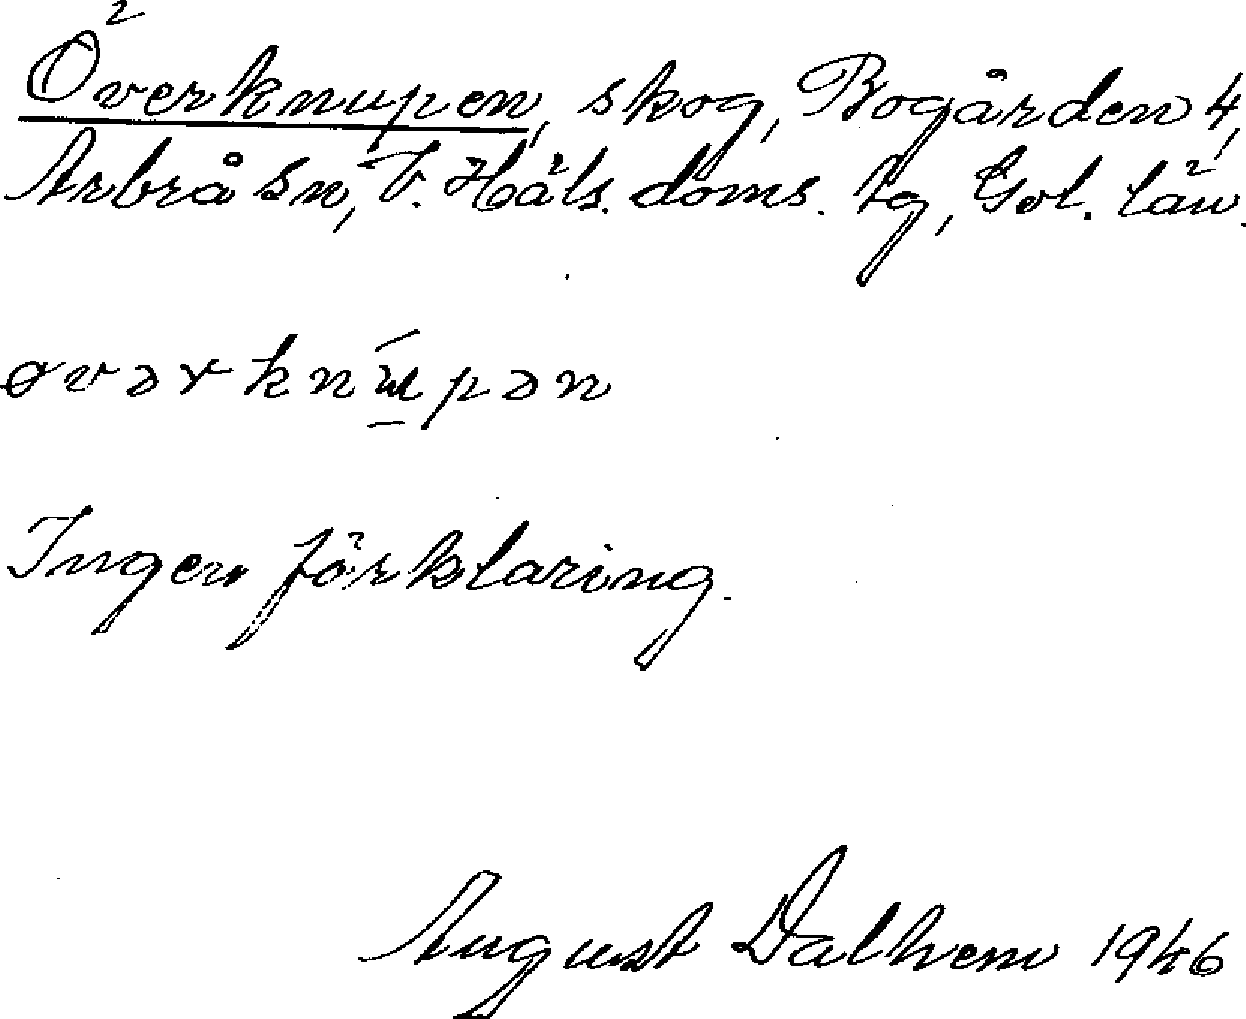 Överknupen, skog, Bogården 4,
Arbrå sn, V. Häls. doms. tg, Gvl. län.
øvərknɯ́pən
Ingen förklaring.
August Dalhem 1946